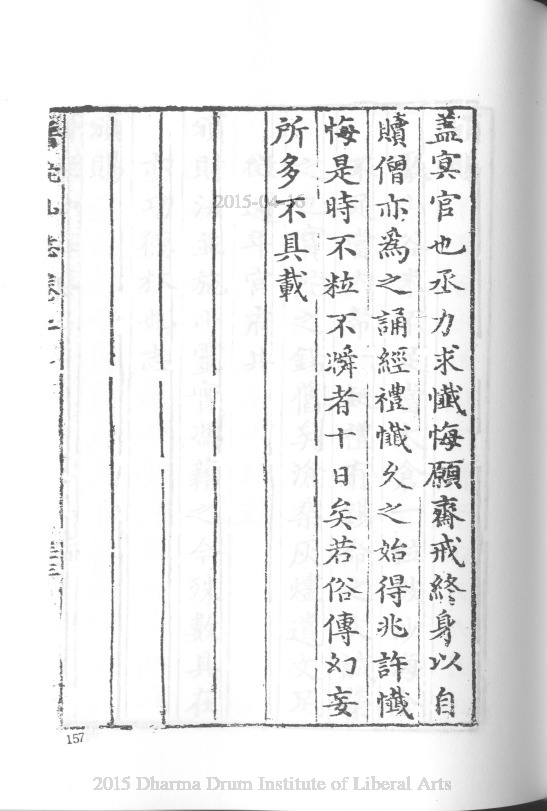 蓋冥官也丞力求懺悔願齋戒終身以自
贖僧亦為之誦經禮懺久之始得兆許懺
悔是時不粒不瞬者十日矣若俗傳幻妄
所多不具載
2015-04-16
157
2015 Dharma Drum Institute of Liberal Arts